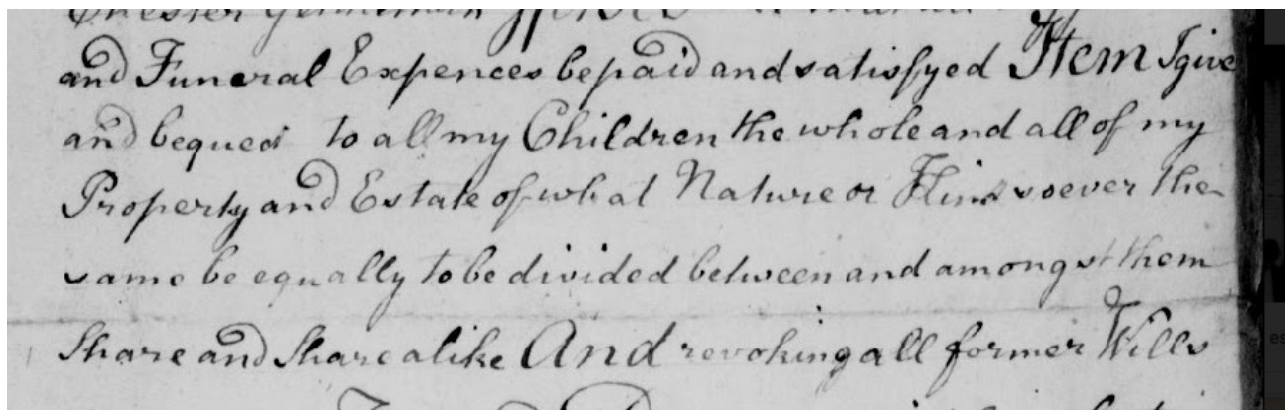 Chester Gentleman
and Funeral Expences be paid and satisfyed Item I give
and bequest to all my Children the whole and all of my
Property and Estate of what Nature or Kind soever the
same be equally to be divided between and amongst them
Share and Share alike And revoking all former Wills